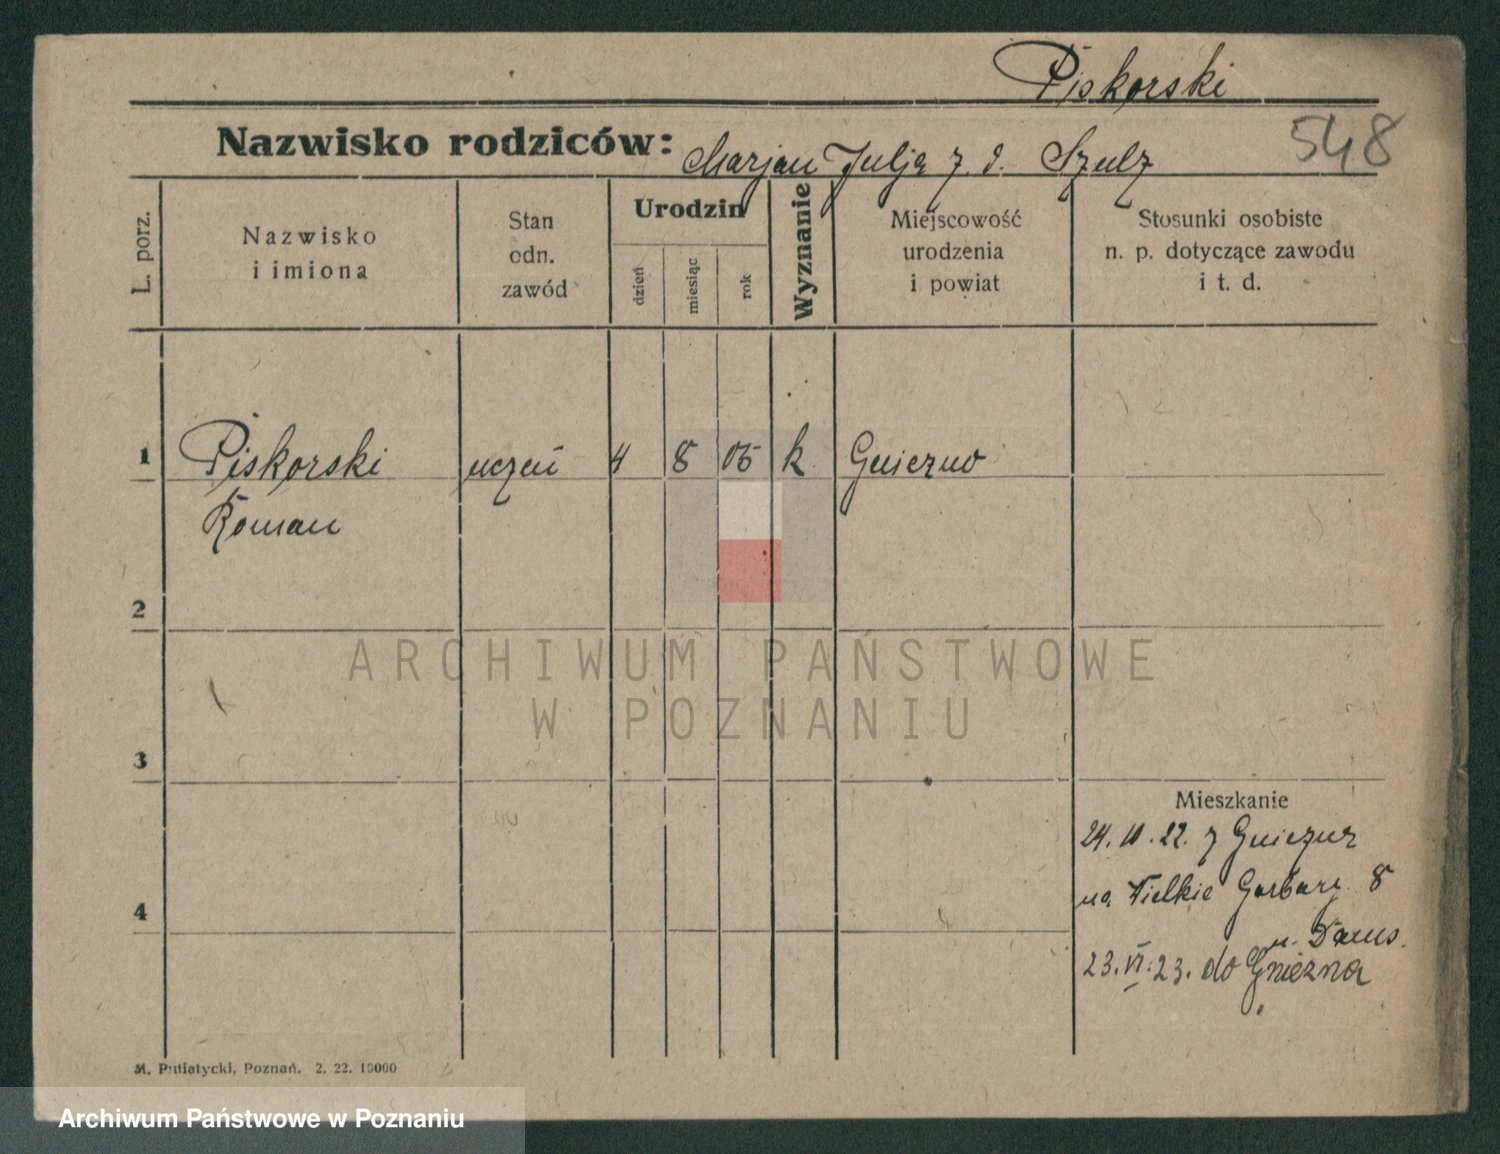 Piskorski
548
Nazwisko rodziców: Marjan Julja z d. Szulz
L. porz.
Nazwisko
i imiona
Stan
odn.
zawód
Urodzin
dzień
miesiąc
rok
Wyznanie
Miejscowość
urodzenia
i powiat
Stosunki osobiste
n. p. dotyczące zawodu
i t. d.
1 Piskorski uczeń 4 8 05 k Gniezno
Roman
2
3
Mieszkanie
z Gniezna
na Wielkie Garbary 8
4
u.
23. VI. 23. do Gniezna
M. Putiatycki, Poznań. 2. 22. 10000
ARCHIWUM PAŃSTWOWE
W POZNANIU
Archiwum Państwowe w Poznaniu